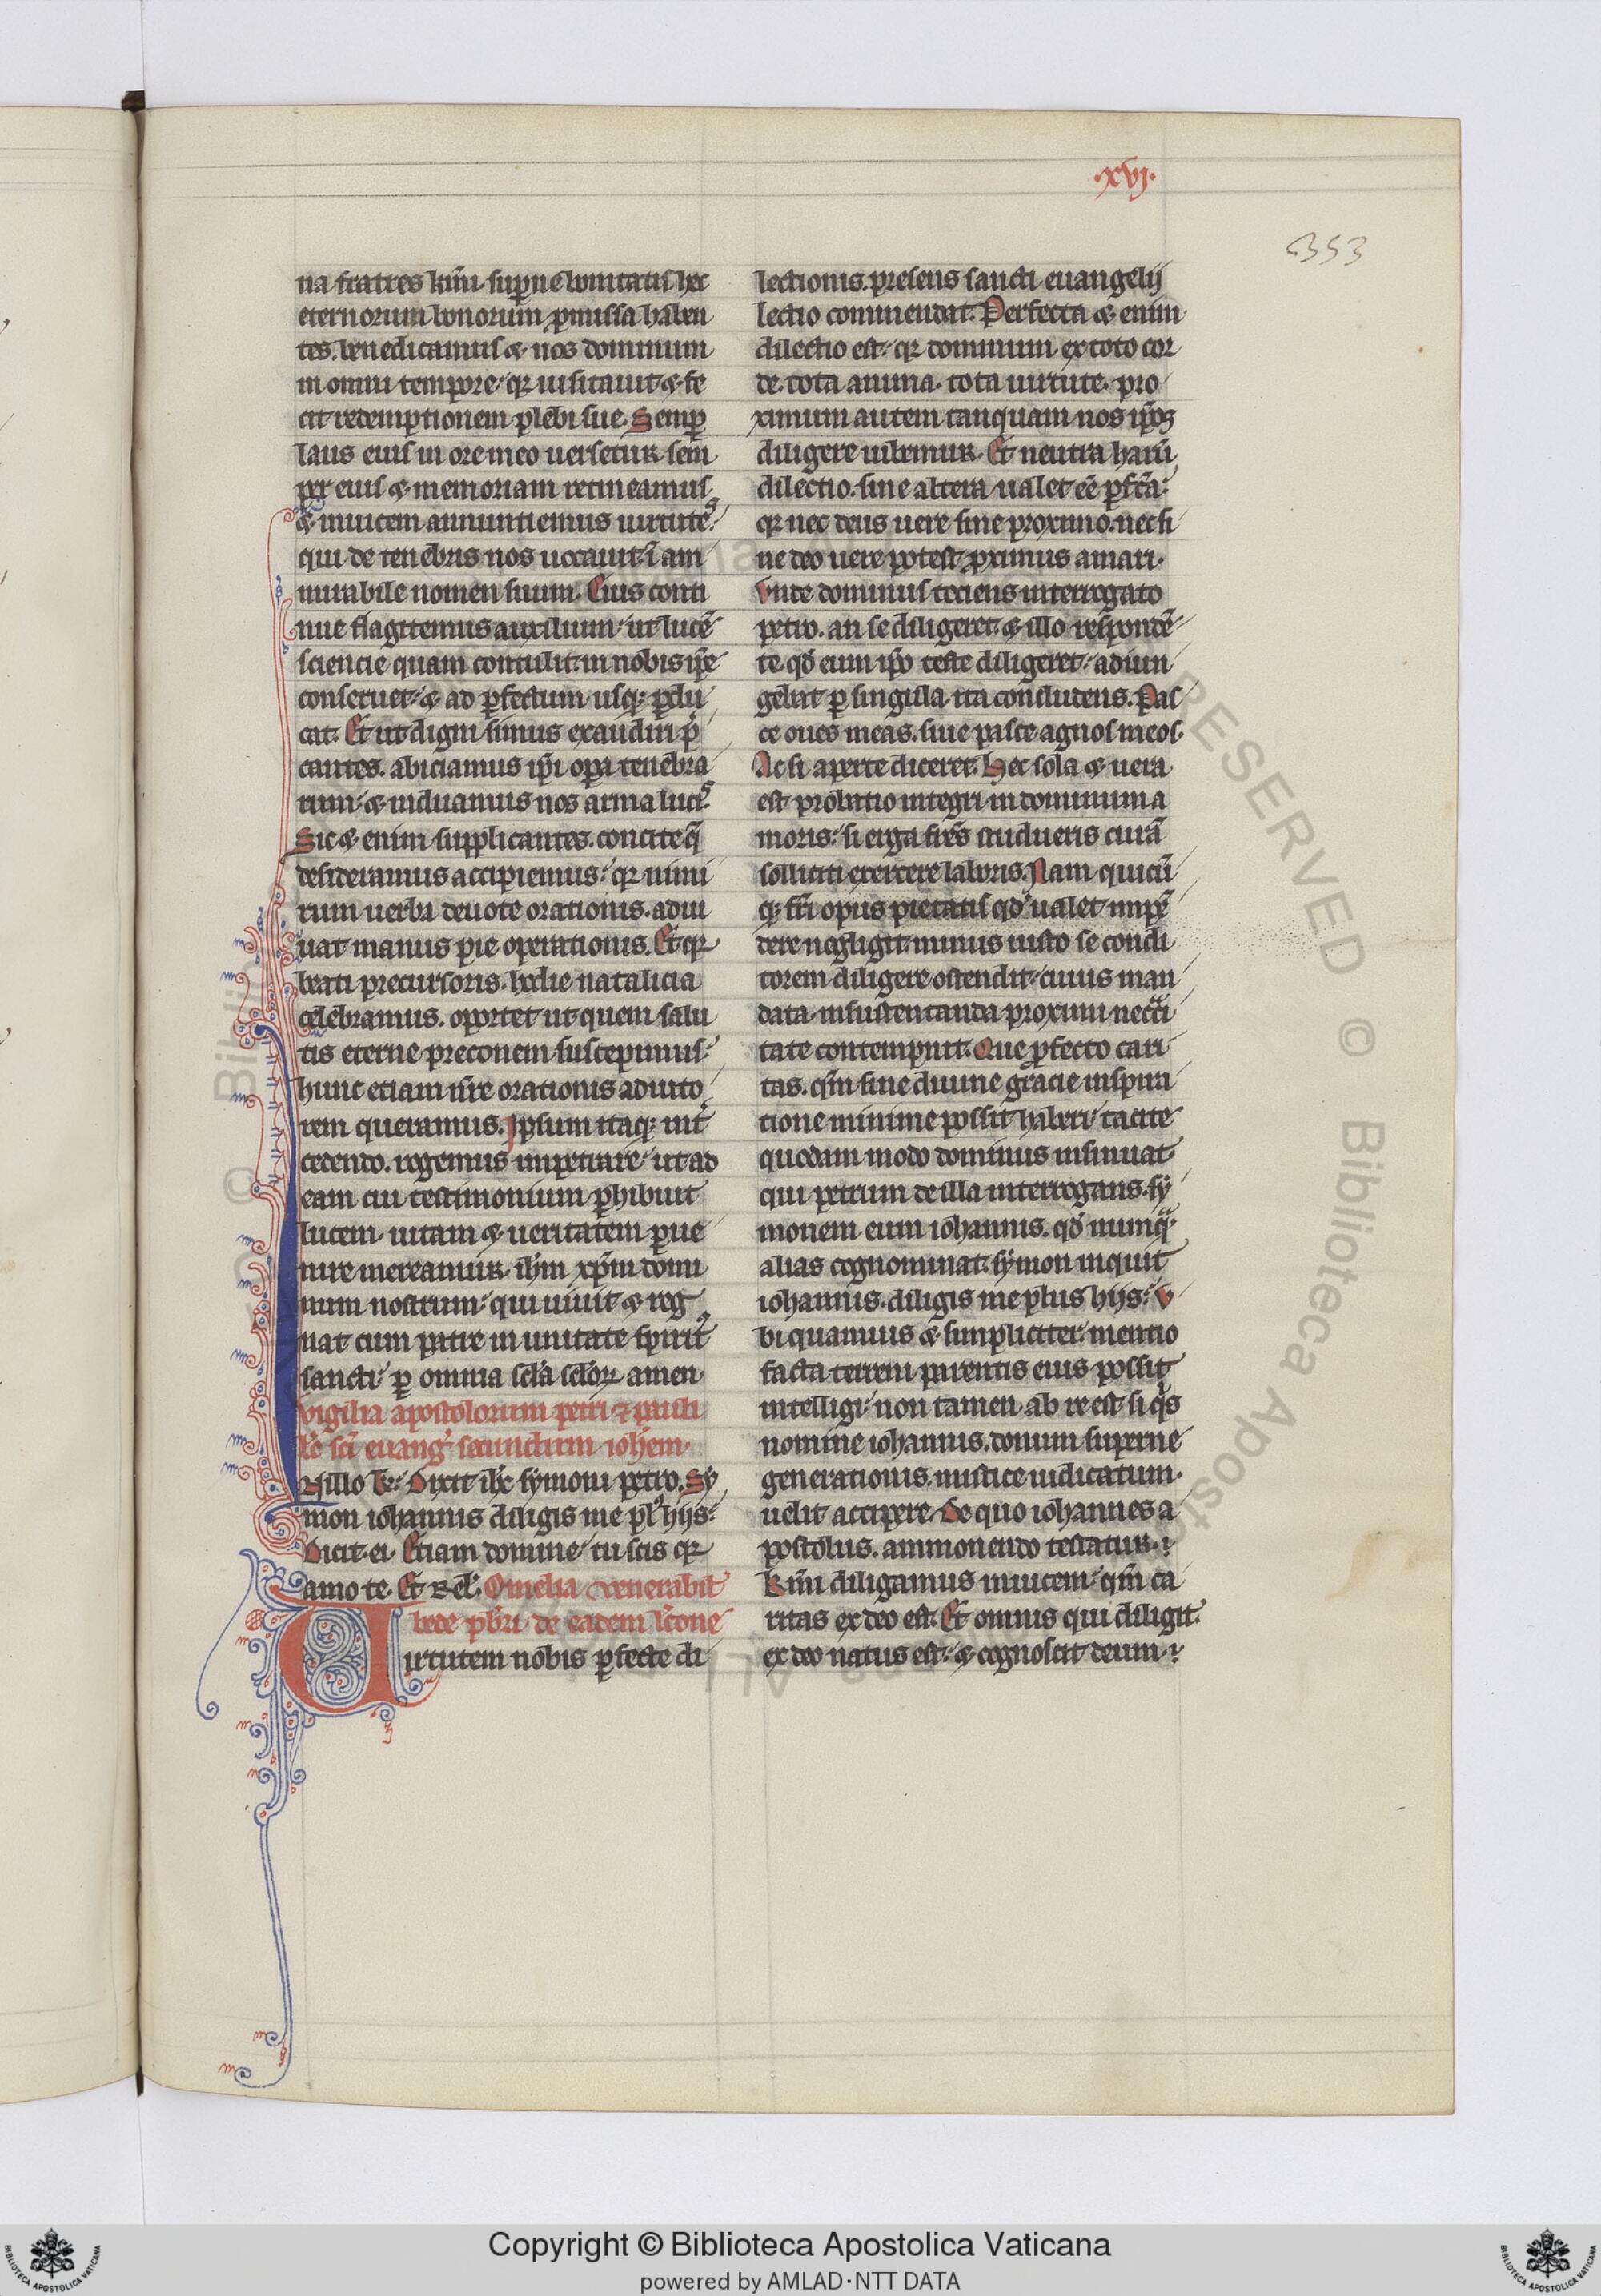 .xvj.
353
na fratres km̄i. suꝑne bonitatis hec
eternorum bonorum ꝓmissa haben
tes. benedicamus & nos dominum
in omni tempore. qr uisitauit & fe
cit redemptionem plebi sue. Semꝑ
laus eius in ore meo uersetur. sem
per eius & memoriam retineamus
& inuicem annuntiemus uirtutes.
qui de tenebris nos uocauit. ī am
mirabile nomen suum. Eius conti
nue flagitemus auxilium. ut lucē
sciencie quam contulit. in nobis ip̄e
conseruet. & ad ꝑfectum usq; ꝑdu
cat. Et ut digni simus exaudiri p̄
cantes. abiciamus ip̄i opa tenebra
rum. & induamus nos arma lucis.
Sic & enim supplicantes. concite q̄
desideramus accipiemus. qr nimi
rum uerba deuote orationis. adiu
uat manus pie operationis. Et qr
beati precursoris. hodie natalicia
celebramus. oportet ut quem salu
tis eterne preconem suscepimus.
hunc etiam nr̄e orationis adiuto
rem queramus. Ipsum itaq; int̄
cedendo. rogemus impetrare. ut ad
eam cui testimonium ꝑhibuit
lucem. uitam & ueritatem ꝑue
nire mereamur. ihm̄ xp̄m domi
num nostrum. qui uiuit & reg
nat cum patre in unitate spirit9
sancti. ꝑ omnia scl̄a scl̄oꝝ amen.
vigilia apostolorum petri & pauli
lc̄o sc̄i euanḡ secundum ioh̄em.
N illo te. Dixit ih̄c symoni petro. Sy
mon iohannis diligis me pl9 hijs.
Dicit ei. Etiam domine tu scis qr
amo te. Et Rel̄. Omelia venerabil̄
bede pb̄ri de eadem lc̄one
Virtutem nobis ꝑfecte di
lectionis. presens sancti euangelij
lectio commendat. Perfecta & enim
dilectio est. qr dominum ex toto cor
de. tota anima. tota uirtute. pro
ximum autem tanquam nos ip̄os
diligere iubemur. Et neutra harū
dilectio. sine altera ualet eē ꝑfc̄a.
qr nec deus uere sine proximo. nec si
ne deo uere potest ꝓximus amari.
Vnde dominus tociens interrogato
petro. an se diligeret. & illo respondē
te. qd̄ eum ip̄o teste diligeret. adiun
gebat ꝑ singula. ita concludens. Pas
ce oues meas. siue pasce agnos meos.
Ac si aperte diceret. Hec sola & uera
est probatio integri in dominum a
moris. si erga fr̄es studueris curā
solliciti exercere laboris. Nam quicū
q; fr̄i opus pietatis qd̄ ualet inpē
dere negligit. minus iusto se condi
torem diligere ostendit. cuius man
data. in sustentanda proximi necc̄i
tate contempnit. Que ꝓfecto cari
tas. qm̄ sine diuine gracie inspira
tione minime possit haberi. tacite
quodam modo dominus insinuat
qui petrum de illa interrogans. sy
monem eum iohannis. qd̄ numq̄
alias cognominat. symon inquit
iohannis. diligis me plus hijs. V
bi quamuis & simpliciter. mentio
facta terreni parentis eius possit
intelligi. non tamen ab re est si qis
nomine iohannis. donum superne
generationis. mistice uidicatum.
uelit accipere. De quo iohannes a
postolus. ammonendo testatur.
Km̄i diligamus inuicem. qm̄ ca
ritas ex deo est. Et omnis qui diligit.
ex deo natus est. & cognoscit deum.
Copyright © Biblioteca Apostolica Vaticana
powered by AMLAD·NTT DATA